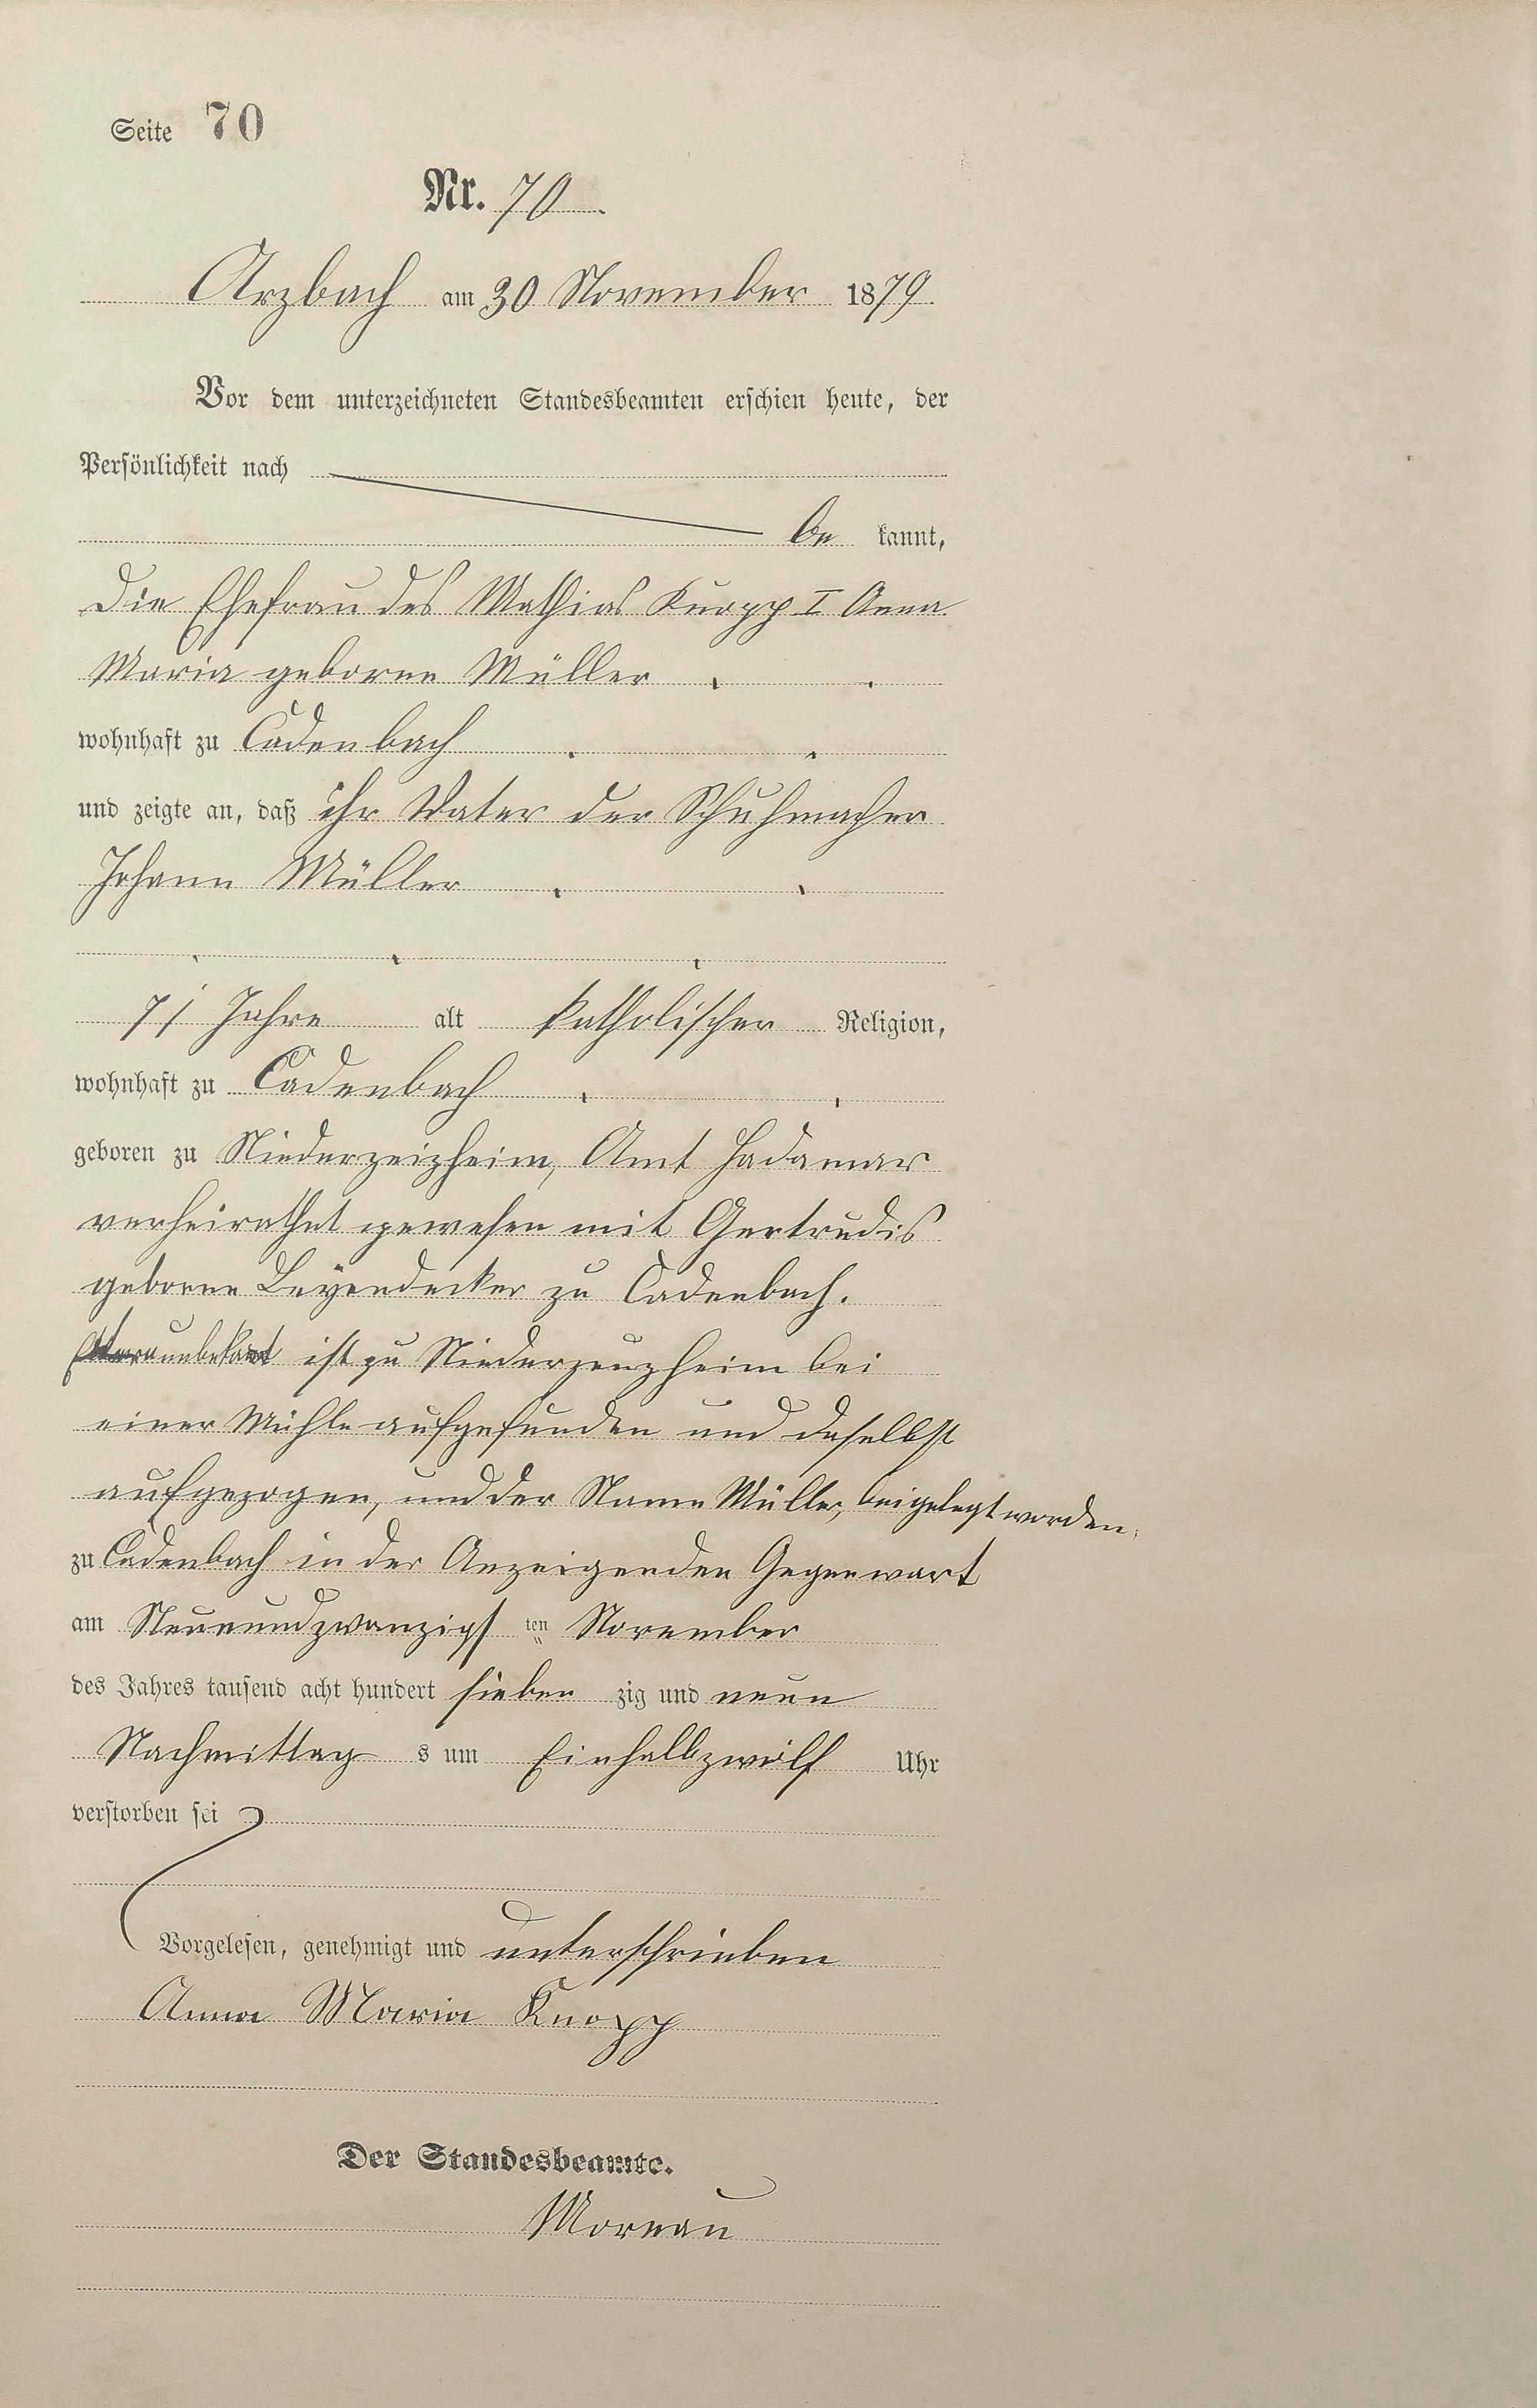 Seite 70
Nr. 70
Arzbach am 30 November 1879.
Vor dem unterzeichneten Standesbeamten erschien heute, der
Persönlichkeit nach
be kannt,
die Ehefrau des Mathias Knopp I Anna
Maria geborne Müller
wohnhaft zu Cadenbach
und zeigte an, daß ihr Vater der Schuhmacher
Johann Müller
71 Jahre alt katholischer Religion,
wohnhaft zu Cadenbach
geboren zu Niederzeizheim, Amt Hadamar
verheirathet gewesen mit Gertrudis
geborne Leyendecker zu Cadenbach.
unbekant ist zu Niederzeuzheim bei
einer Mühle aufgefunden und daselbst
aufgezogen, und der Name Müller, beigelegt worden.
zu Cadenbach in der Anzeigenden Gegenwart
am Neunundzwanzigs ten November
des Jahres tausend acht hundert sieben zig und neun
Nachmittag s um Einhalbzwölf Uhr
verstorben sei
Vorgelesen, genehmigt und unterschrieben
Anna Maria Knopp
Der Standesbeamte.
Moreau